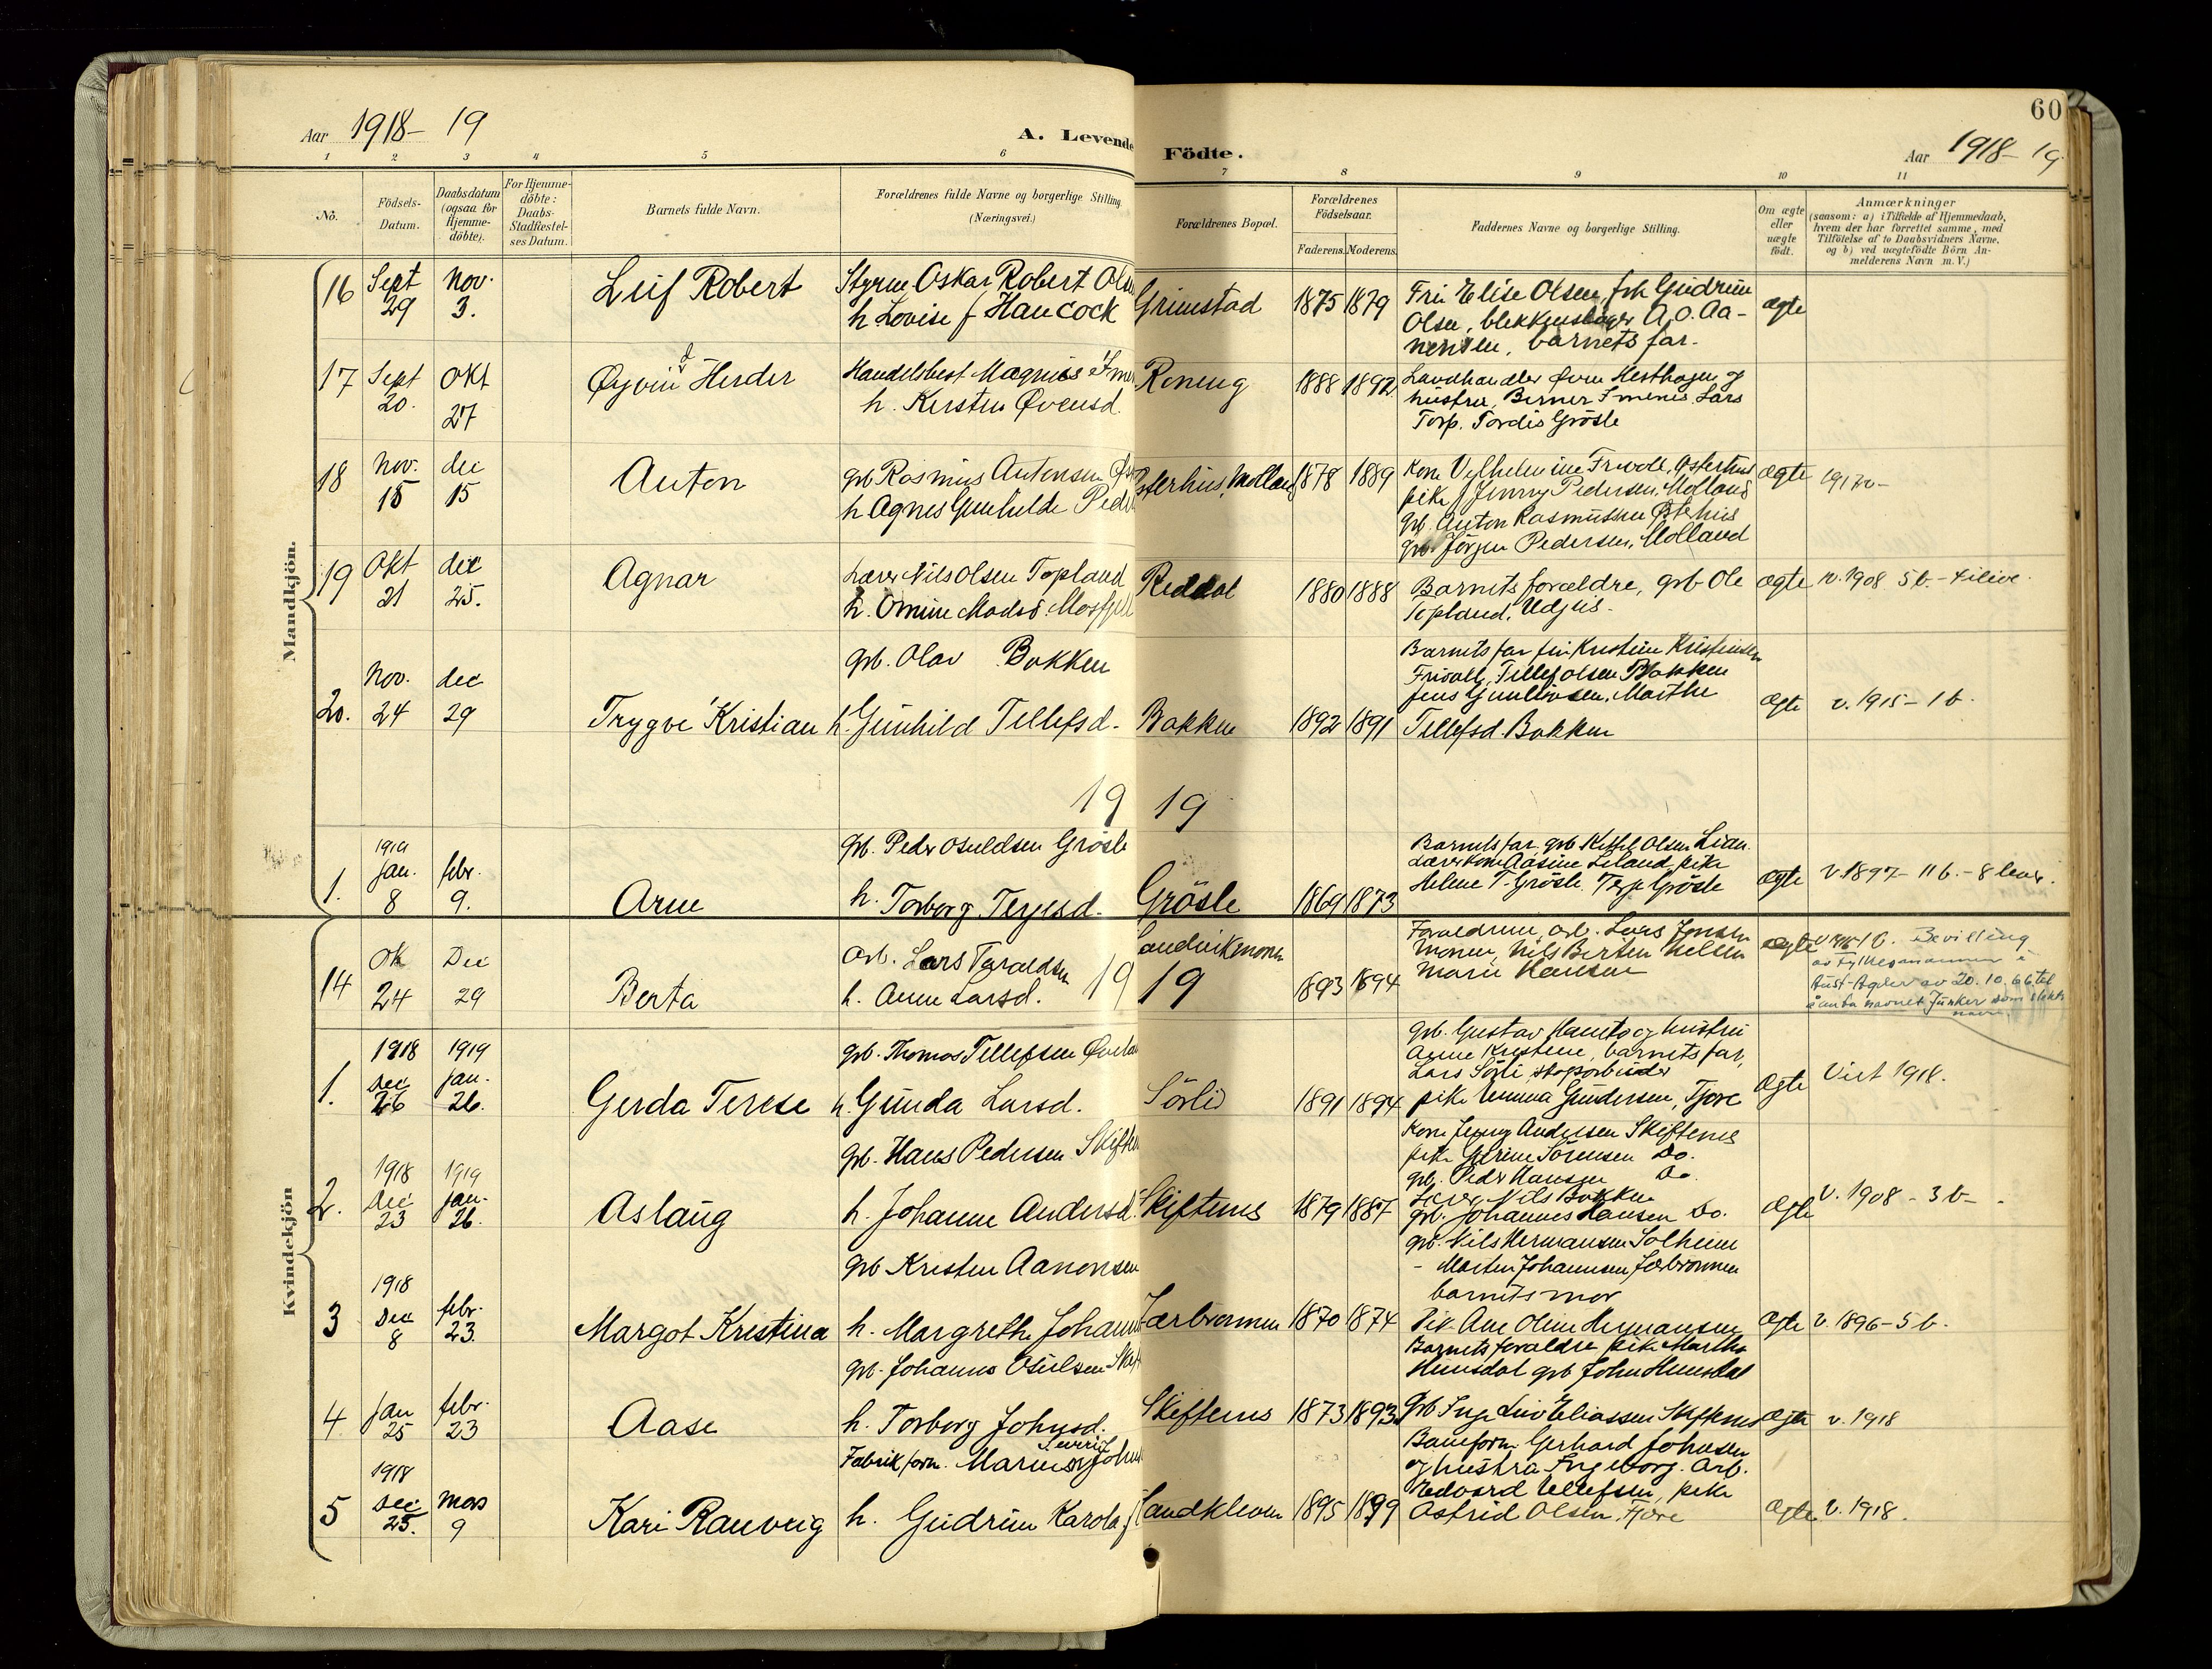 Aar 1918- 19
A. Levende
Födte.
60
Aar 1918- 19
1 2 3 4 5 6 7 8 9 10 11
No.
Födsels-
Datum.
Daabsdatum
(ogsaa for
Hjemme-
döbte).
For Hjemme-
döbte:
Daabs-
Stadfæstel-
ses Datum.
Barnets fulde Navn.
Forældrenes fulde Navne og borgerlige Stilling.
(Næringsvei.)
Forældrenes Bopæl.
Forældrenes
Födselsaar.
Faderens. Moderens.
Faddernes Navne og borgerlige Stilling.
Om ægte
eller
uægte
født.
Anmærkninger
(saasom: a) i Tilfælde af Hjemmedaab,
hvem der har forrettet samme, med
Tilføielse af to Daabsvidners Navne,
og b) ved uægtefödte Börn An-
melderens Navn m. V.)
Mandkjön.
16
Sept
29
Nov.
3.
Leif Robert
Styrm. Oskar Robert Olse
h Lovise f Hancock
Grimstad
1875 1879
Fru Elise Olsen, frk Gudrun
Olsen, blekkenslager A. O. Aa-
nensen, barnets far.
ægte
17
Sept
20.
Okt
27
Øyvind Herder
Handelsbest Magnus
h. Kirsten Øvensd.
Roneng
1888 1892
Landhandler Even Hesthagen og
hustru, Berner Imenes Lars
Torp. Tordis Grösle
18
Nov.
15
dec
15
Anton
grb Rasmus Antonsen
h Agnes Gunhilde Peders
Østerhus, Molland
1878 1889
Kone Vilhelmine Frivold, Østerhus
pike Jenny Pedersen, Molland
grb. Anton Rasmussen Østerhus
grb. Jörgen Pedersen, Molland
ægte
19
Okt
21
dec
25.
Agnar
Lærer Nils Olsen Topland
h. Omine Madsd. Mosfjell
Reddal
1880 1888
Barnets forældre, grb Ole
Topland, Udjus.
ægte
v. 1908 5 b. - 4 ilive.
20.
Nov.
24
dec
29
Trygve Kristian
grb. Olav Bakken
h. Gunhild Tellefsd.
Bakken
1892 1891
Barnets far fru Kristine Kristensen
Frivold, Tellef Olsen Bakken
Jens Gundersen, Marthe
Tellefsd. Bakken
ægte
v. 1915 - 1 b.
19 19
1.
1919
Jan.
8
febr.
9.
Arne
grb. Peder Osuldsen Grösle
h. Torborg Terjesd.
Grösle
1869 1873
Barnets far grb Kittel Olsen Lian
Lærerkone Aasine Leland, pike
Helene T. Grösle. Terje Grösle
ægte
v. 1897 11 b. - 8 lever.
Kvindekjön
14
Ok
24
Dec
29
Berta
Arb. Lars Taraldsen
h. Anne Larsd.
Landvikmonen
19 19
1893 1894
Foreldrene, arb. Lars Jensen
Monen, Nils Berten Nelsen
Marie Hansen
ægte
v 1916 1 b. Bevilling
av Fylkesmannen i
Aust-Agder av 20.10.66 til
å anta navnet Junker som slekts
navn.
1.
1918
Dec
26
1919
Jan.
26.
Gerda Terese
grb. Thomas Tellefsen
h. Gunda Larsd.
Sörlid
1891 1894
grb. Gustav Hamto og hustru
Anne Kristine, barnets far,
Lars Sörli skogsarbeider
pike Emma Gundersen, Fjære
ægte
Viet 1918.
2.
1918
Dec
23
1919
Jan.
26.
Aslaug
grb. Hans Pedersen Skiften
h. Johanne Andersd.
Skiftenes
1879 1887
Kone Jenny Andersen Skiftenes
pike Gurine Sörensen Do.
grb. Peder Hansen Do.
Lærer Nils Bakken
grb. Johannes Hansen Do.
ægte
v. 1908 - 3 b -
3
1918
Dec
8
febr.
23.
Margot Kristina
grb Kristen Aanonsen
h. Margrethe Johann
Færbrönnen
1870 1874
grb. Nils Hermansen Solheim
- Morten Johannsen Færbrönnen
barnets mor
Pik. Ane Oline Hermansen
ægte
v. 1896 - 5 b.
4
Jan
25
febr.
23
Aase
grb. Johannes Osulsen Skif
h. Torborg Johnsd.
Skiftenes
1873 1893
Barnets foraldre pike Martha
Hunsdal grb John Hunsdal
grb Inge Eliassen Skiftenes
ægte
v. 1918
5
1918
Dec
25.
Mars
9
Kari Ranveig
Fabrikform. Marius Severin Johns
h. Gudrun Karola f
Sandkleven
1895 1899
Baneform. Gerhard Johnsen
og hustru Ingeborg. Arb.
Edvard Ellefsen, pike
Astrid Olsen. Fjære
ægte
v. 1918.